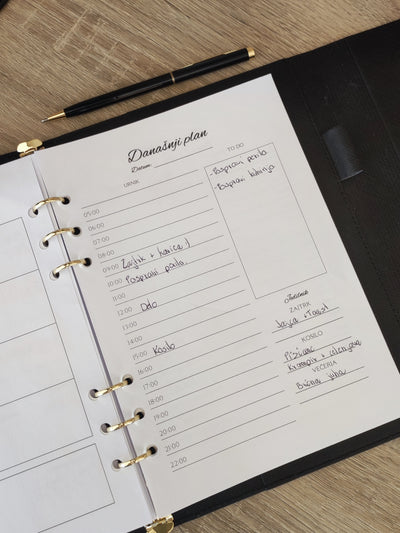 Današnji plan
Datum:
URNIK
TO DO
05:00
06:00
07:00
08:00
09:00 Zajtrk + kavica :)
10:00 Pospravi perilo
11:00
12:00 Delo
13:00
14:00
15:00 Kosilo
16:00
17:00
18:00
19:00
20:00
21:00
22:00
- Pospravi perilo
- Pospravi kuhinjo
Jedilnik
ZAJTRK
Jajca + Toast
KOSILO
Piščanec
Krompir + zelenjava
VEČERJA
Bučna juha